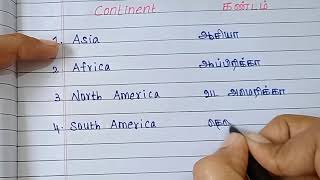 Continent கண்டம்
1. Asia ஆசியா
2. Africa ஆப்பிரிக்கா
3. North America வட அமெரிக்கா
4. South America தெ